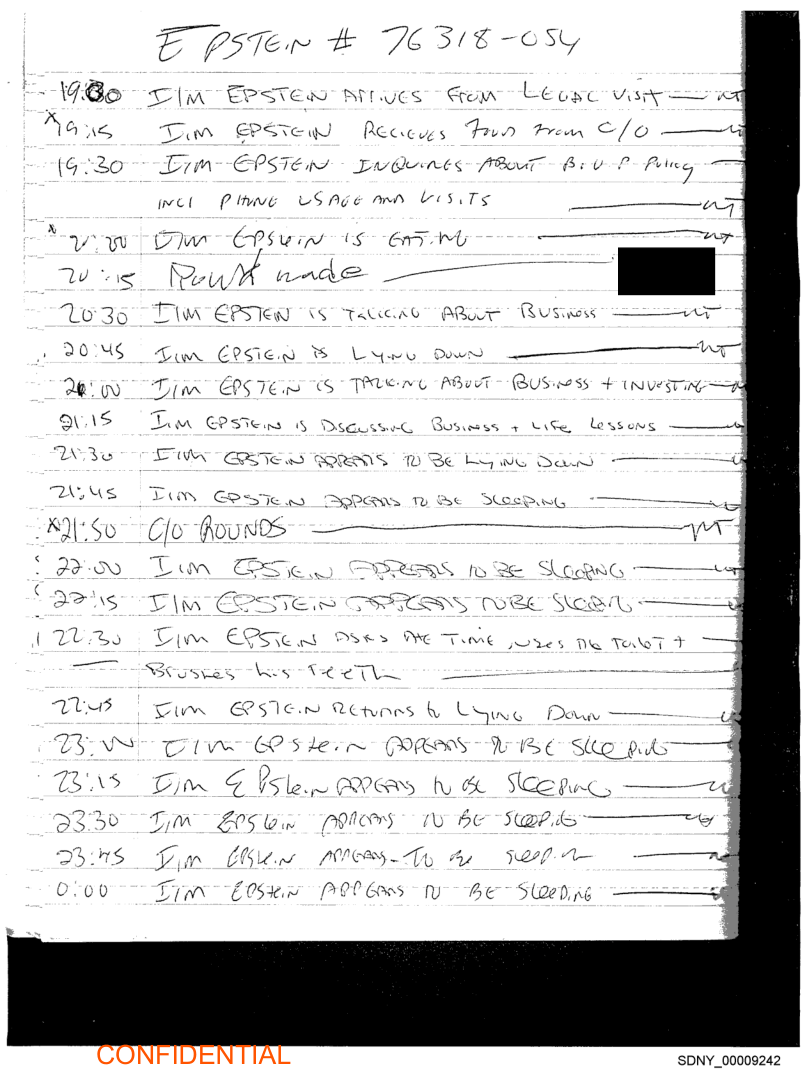 EPSTEIN # 76318-054
19:00 I/M EPSTEIN ARRIVES FROM LEGAL VISIT
x 19:15 I/M EPSTEIN RECIEVES FOOD FROM C/O
19:30 I/M EPSTEIN INQUIRES ABOUT B.O.P POLICY
INCL PHONE USAGE AND VISITS
x 20:00 I/M EPSTEIN IS EATING
20:15 Round made
20:30 I/M EPSTEIN IS TALKING ABOUT BUSINESS
20:45 I/M EPSTEIN IS LYING DOWN
21:00 I/M EPSTEIN IS TALKING ABOUT BUSINESS + INVESTING
21:15 I/M EPSTEIN IS DISCUSSING BUSINESS + LIFE LESSONS
21:30 I/M EPSTEIN APPEARS TO BE LYING DOWN
21:45 I/M EPSTEIN APPEARS TO BE SLEEPING
x 21:50 C/O ROUNDS
22:00 I/M EPSTEIN APPEARS TO BE SLEEPING
22:15 I/M EPSTEIN APPEARS TO BE SLEEPING
22:30 I/M EPSTEIN ASKS THE TIME, USES THE TOILET +
Brushes his teeth
22:45 I/M EPSTEIN RETURNS to LYING DOWN
23:00 I/M EPSTEIN APPEARS TO BE SLEEPING
23:15 I/M EPSTEIN APPEARS TO BE SLEEPING
23:30 I/M EPSTEIN APPEARS TO BE SLEEPING
23:45 I/M EPSTEIN APPEARS TO BE SLEEPING
0:00 I/M EPSTEIN APPEARS TO BE SLEEPING
CONFIDENTIAL
SDNY_00009242